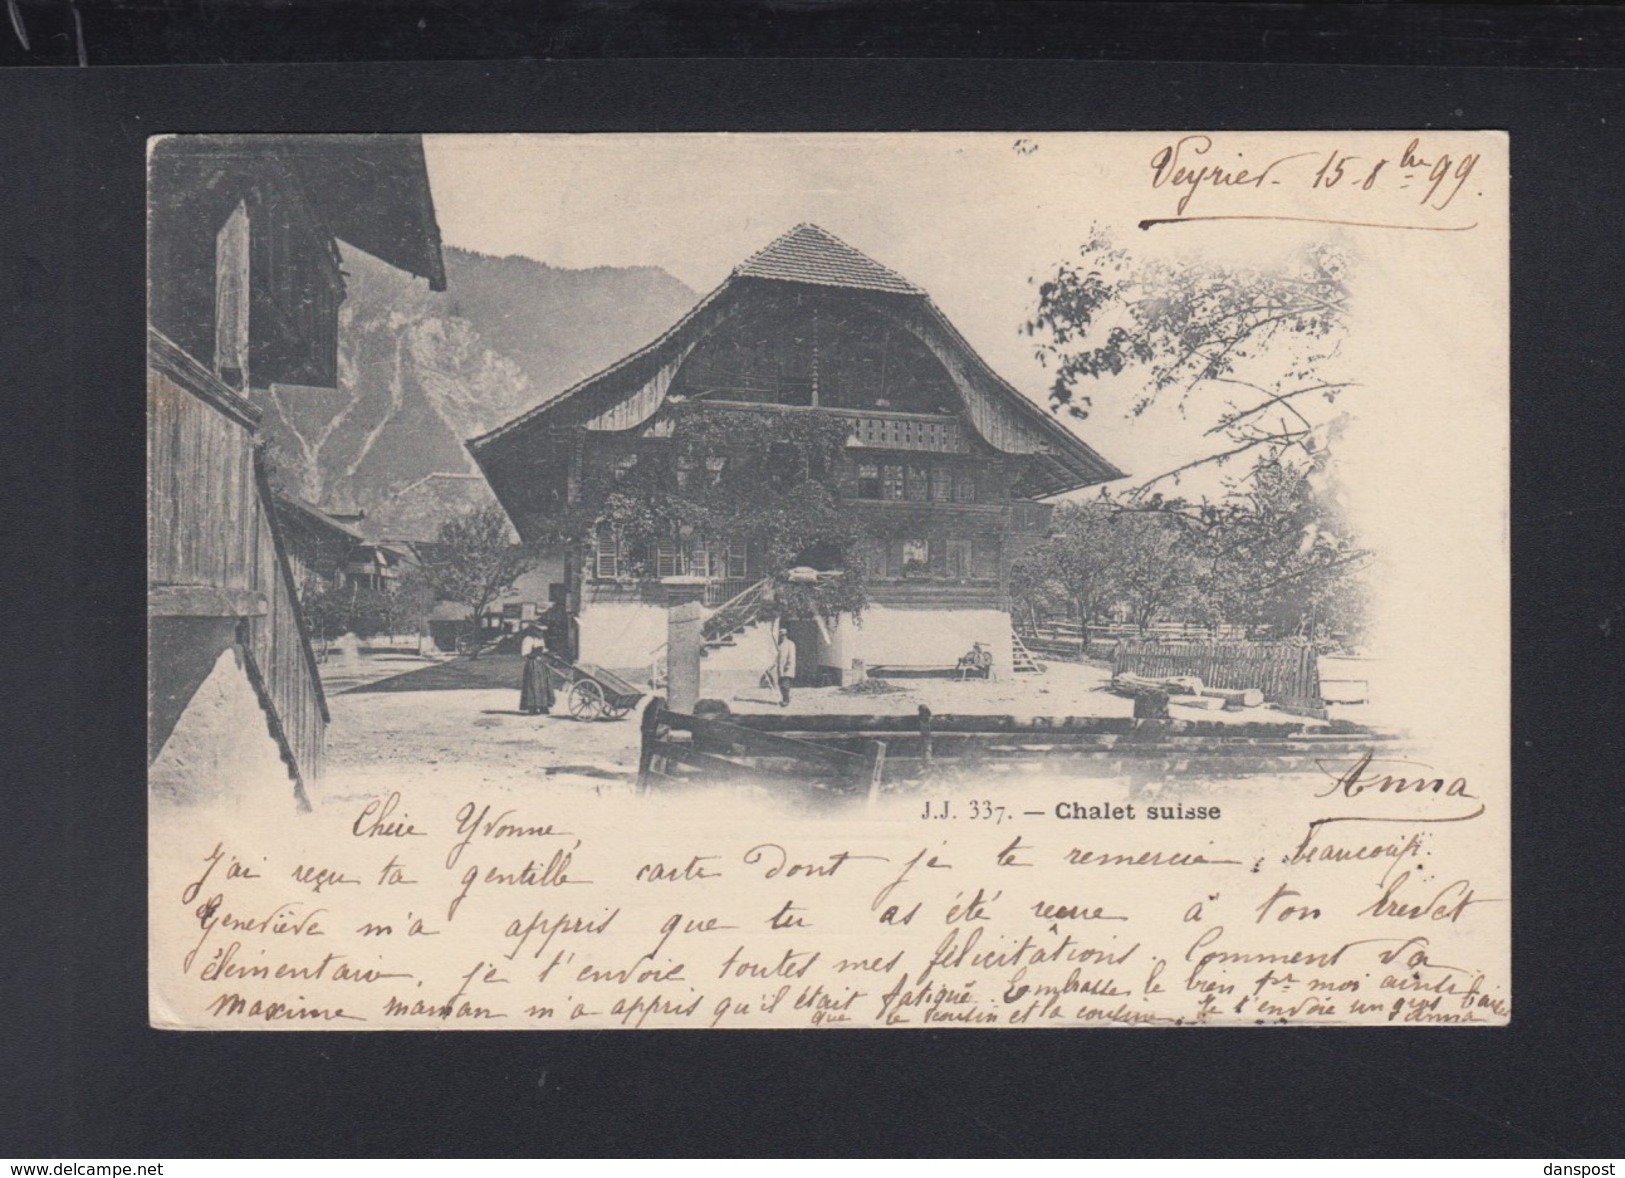 Veyrier. 15-8bre 99.
J.J. 337. — Chalet suisse
Anna
Chère Yvonne,
J'ai reçu ta gentille carte dont je te remercie beaucoup.
Geneviève m'a appris que tu as été reçue à ton brevet
élémentaire, je t'envoie toutes mes félicitâtions. Comment va
Maxime maman m'a appris qu'il était fatigué. Embrasse le bien pr moi ainsi
que le cousin et la cousine. Je t'envoie un gros baiser
Anna
www.delcampe.net
danspost